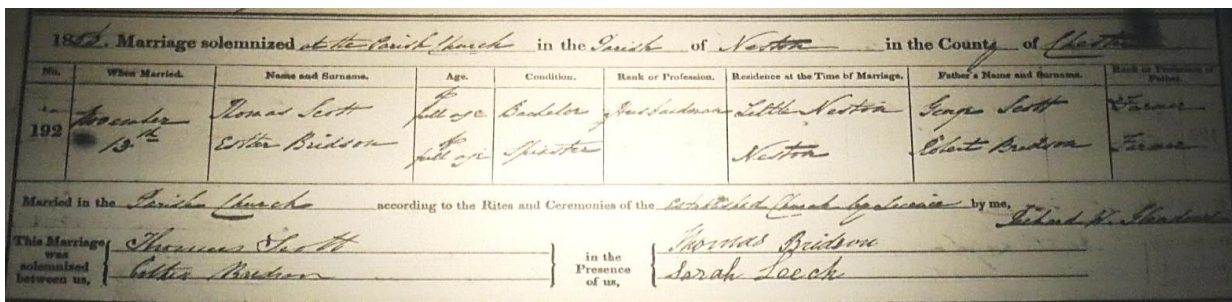 18 . Marriage solemnized at the Parish Church in the Parish of Neston in the County of Chester
No. When Married. Name and Surname. Age. Condition. Rank or Profession. Residence at the Time of Marriage. Father's Name and Surname. Rank or Profession of Father.
192 November 13th Thomas Scott of full age Bachelor Husbandman Little Neston George Scott Farmer
Esther Bridson of full age Spinster Neston Robert Bridson Farmer
Married in the Parish Church according to the Rites and Ceremonies of the Established Church by licence by me,
Richard W.
This Marriage was solemnized between us, { Thomas Scott } in the Presence of us, { Thomas Bridson
Esther Bridson Sarah Leeck